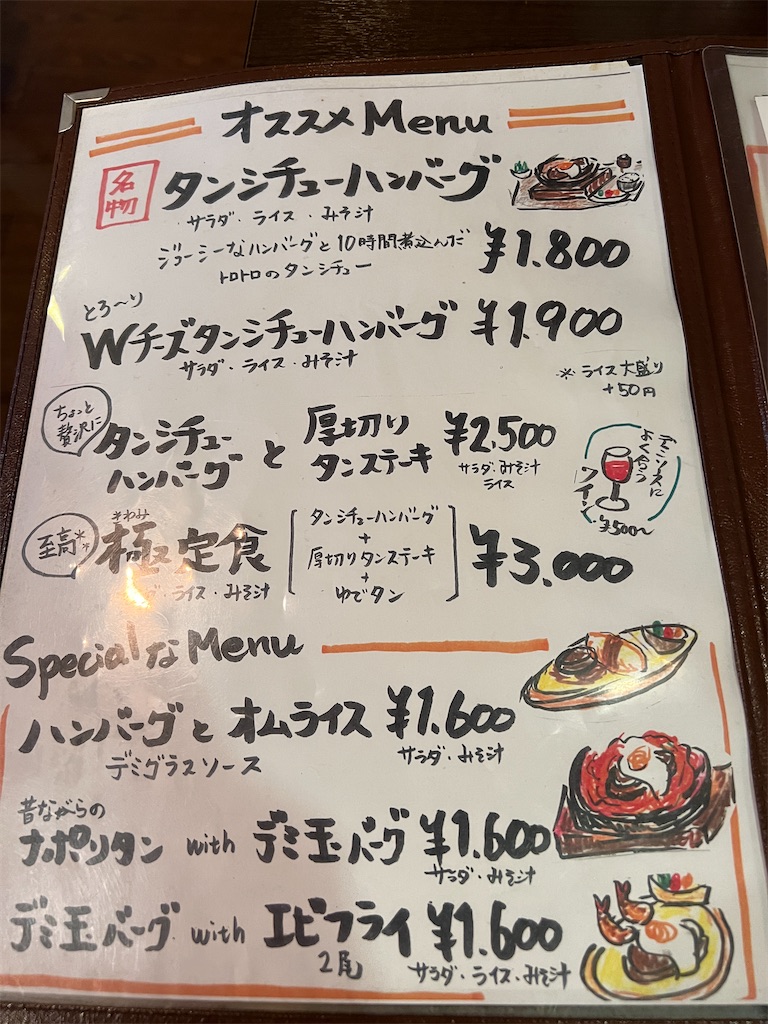 オススメ Menu
名物
タンシチューハンバーグ
サラダ・ライス・みそ汁
ジューシーなハンバーグと10時間煮込んだ
トロトロのタンシチュー
¥1.800
とろ〜り
Wチーズタンシチューハンバーグ ¥1.900
サラダ・ライス・みそ汁
※ライス大盛り
+50円
ちょっと
贅沢に
タンシチュー
ハンバーグ
と
厚切り
タンステーキ
¥2.500
サラダ・みそ汁
ライス
デミソースに
よく合う
ワイン
¥500〜
至高**
きわみ
極定食
ダ・ライス・みそ汁
タンシチューハンバーグ
+
厚切りタンステーキ
+
ゆでタン
¥3.000
Specialな Menu
ハンバーグとオムライス ¥1.600
デミグラスソース
サラダ・みそ汁
昔ながらの
ナポリタン with デミ玉バーグ ¥1.600
サラダ・みそ汁
デミ玉バーグ with エビフライ ¥1.600
2尾
サラダ・ライス・みそ汁